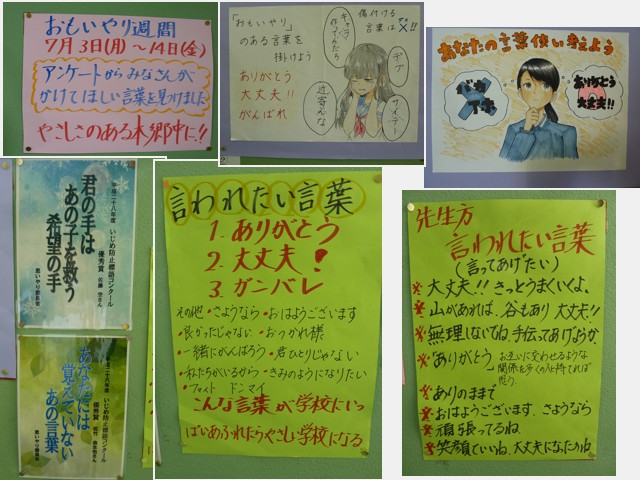 おもいやり週間
7月3日(月)～14日(金)
アンケートからみなさんが
かけてほしい言葉を見つけました
やさしさのある本郷中に!!
「おもいやり」
のある言葉を
掛けよう
ありがとう
大丈夫!!
がんばれ
傷付ける
言葉は×!!
キャラ
作ってんだろ
デブ
サイテー
近寄んな
あなたの言葉使い考えよう
ありがとう
大丈夫!!
平成二十八年度 いじめ防止標語コンクール
優秀賞
君の手は
あの子を救う
希望の手
思いやり委員会
平成二十八年度 いじめ防止標語コンクール
優秀賞
あなたには
覚えていない
あの言葉
思いやり委員会
言われたい言葉
1. ありがとう
2. 大丈夫!
3. ガンバレ
その他 ・さようなら ・おはようございます
・良かったじゃない ・おつかれ様
・一緒にがんばろう ・君ひとりじゃない
・私たちがいるから ・きみのようになりたい
・ファイト ドンマイ
こんな言葉が学校にいっ
ぱいあふれたらやさしい学校になる
先生方
言われたい言葉
(言ってあげたい)
※大丈夫!! きっとうまくいくよ。
※山があれば、谷もあり 大丈夫!!
※無理しないでね。手伝ってあげようか。
※ありがとう
お互いに交わせるような
関係を多くの人と持てれば
と思う。
※ありのままで
※おはようございます、さようなら
※頑張ってるね
※笑顔でいいね、大丈夫になったかね